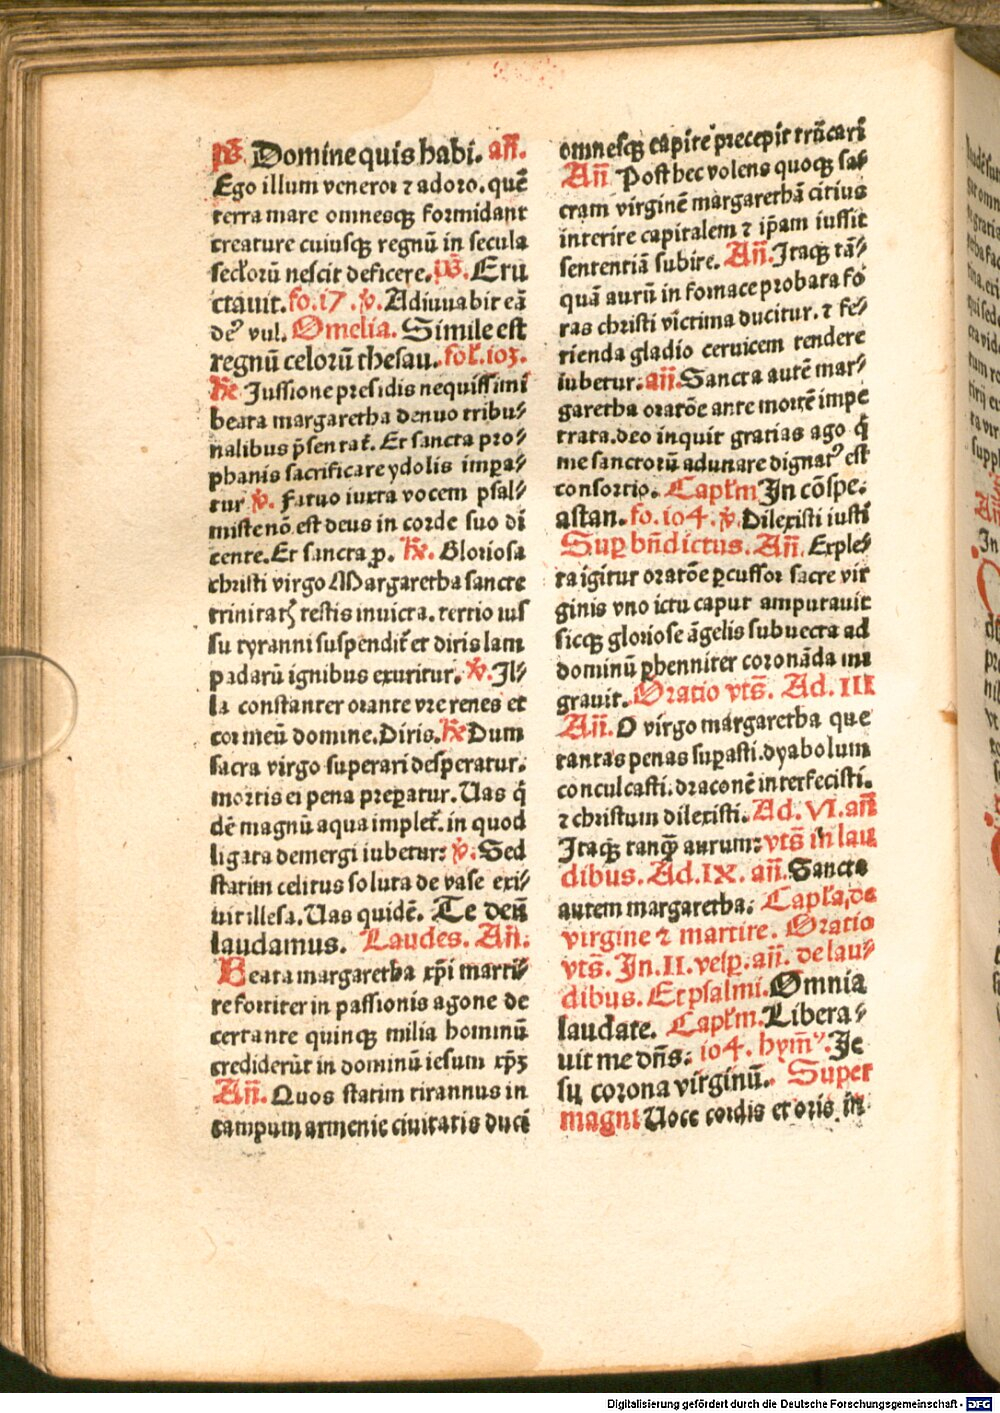 p̄s Domine quis habi. añ.
Ego illum veneror ⁊ adoro. quē
terra mare omnesqꝫ formidant
creature cuiusqꝫ regnū in secula
seclorū nescit deficere. p̄s. Eru
ctauit. fo. 17. ꝟ. Adiuuabit eā
de⁹ vul. Omelia. Simile est
regnū celorū thesau. fol. 103.
℟e Jussione presidis nequissimi
beata margaretha denuo tribu⸗
nalibus p̄sentat̄. Et sancta pro⸗
phanis sacrificare ydolis impa⸗
tur ꝟ. Fatuo iuxta vocem psal⸗
miste nō est deus in corde suo di
cente. Et sancta p. ℟. Gloriosa
christi virgo Margaretha sancte
trinitatꝭ testis inuicta. tertio ius
su tyranni suspendit̄ et diris lam
padarū ignibus exuritur. ꝟ. Jl⸗
la constanter orante vre renes et
cor meū domine. Diris. ℟e Dum
sacra virgo superari desperatur.
mortis ei pena preꝑatur. Uas q̄
dē magnū aqua implet̄. in quod
ligata demergi iubetur: ꝟ. Sed
statim celitus soluta de vase exi⸗
uit illesa. Uas quidē. Te deū
laudamus. Laudes. Añ.
Beata margaretha xp̄i marti⸗
re fortiter in passionis agone de
certante quinqꝫ milia hominū
crediderūt in dominū iesum xp̄ꝫ
Añ. Quos statim tirannus in
campum armenie ciuitatis duci
omnesqꝫ capite precepit trūcari
Añ Post hec volens quoqꝫ sa⸗
cram virginē margarethā citius
interire capitalem ⁊ ip̄am iussit
sententiā subire. Añ. Jtaqꝫ tā⸗
quā aurū in fornace probata fo
ras christi victima ducitur. ⁊ fe⸗
rienda gladio ceruicem tendere
iubetur. añ. Sancta autē mar⸗
garetha oratōe ante mortē impe
trata. deo inquit gratias ago q̄
me sanctorū adunare dignat⁹ est
consortio. Capl̄m In cōspe.
astan. fo. 104. ꝟ. Dilexisti iusti
Suꝑ bn̄dictus. Añ. Exple⸗
ta igitur oratōe ꝑcussor sacre vir
ginis vno ictu caput amputauit
sicqꝫ gloriose āgelis subuecta ad
dominū ꝑhenniter coronāda mi
grauit. Oratio vts̄. Ad. III
Añ. O virgo margaretha que
tantas penas suꝑasti. dyabolum
conculcasti. draconē interfecisti.
⁊ christum dilexisti. Ad. VI. añ
Jtaqꝫ tanqꝫ̄ aurum: vts̄ in lau
dibus. Ad. IX. añ. Sancta
autem margaretha. Capl̄a. de
virgine ⁊ martire. Oratio
vts̄. Jn. II. vesꝑ. añ. de lau⸗
dibus. Et psalmi. Omnia
laudate. Capl̄m. Libera⸗
uit me dn̄s. 104. hym̄⁹. Je
su corona virginū. Super
magni Uoce cordis et oris in
Digitalisierung gefördert durch die Deutsche Forschungsgemeinschaft - DFG